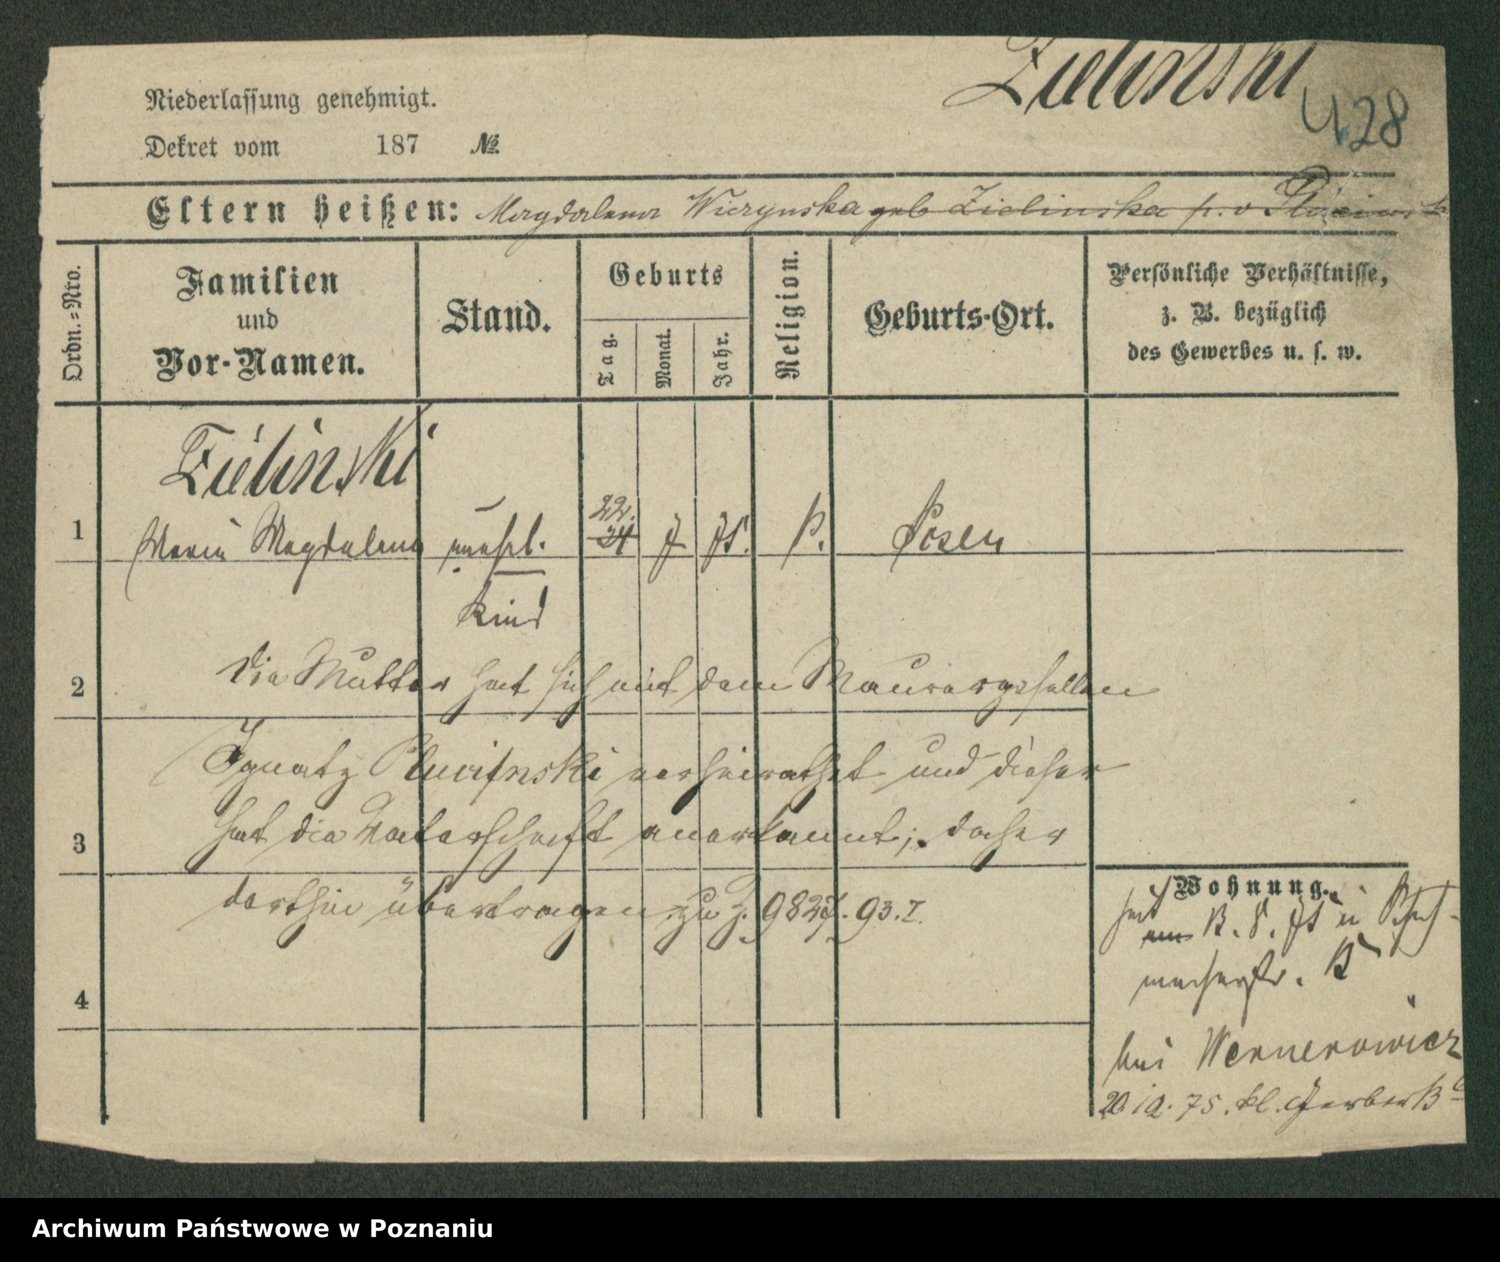 Zielinski
428
Niederlassung genehmigt.
Dekret vom 187 №
Eltern heißen: Magdalena Wierzynska geb Zielinska p. v
Ordn.=Nro.
Familien
und
Vor-Namen.
Stand.
Geburts
Tag.
Monat.
Jahr.
Religion.
Geburts-Ort.
Persönliche Verhältnisse,
z. B. bezüglich
des Gewerbes u. s. w.
Zielinski
22.
1 Maria Magdalena unehel. 24 7 75. k. Posen
Kind
2 Die Mutter hat sich mit dem Maurergesellen
Ignatz Plucinski verheirathet und dieser
3 hat die Vaterschaft anerkannt; daher
dorthin übertragen zu J. 93. I.
4
Wohnung.
seit
B. 8. 75
bei Wernerowicz
20. 10. 75. kl. Gerberstr
Archiwum Państwowe w Poznaniu